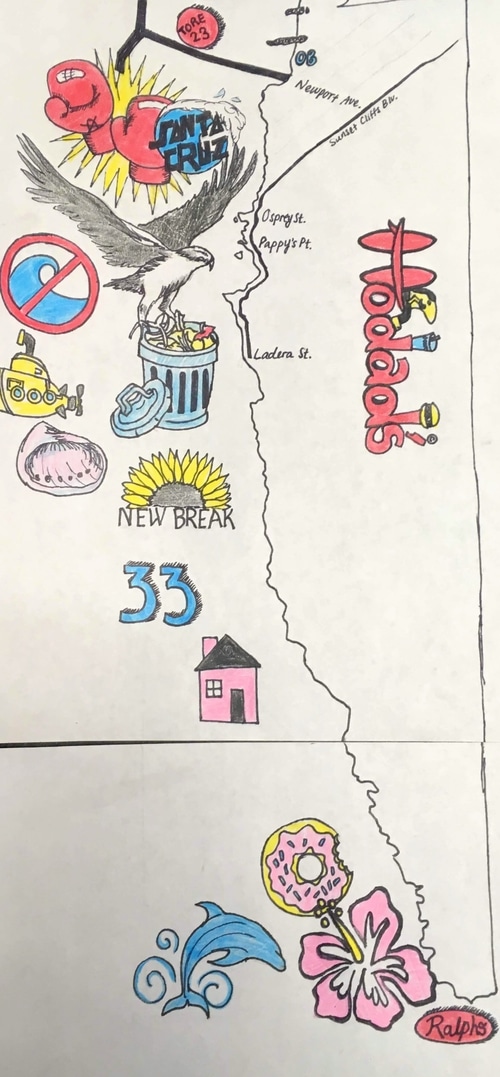 TORE
23
OB
Newport Ave.
Sunset Cliffs Blv.
SANTA
CRUZ
Osprey St.
Pappy's Pt.
Hodad's
®
Ladera St.
NEW BREAK
33
Ralphs